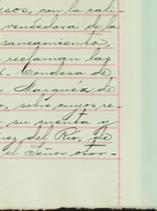 esos, con la cali-
vendedora de la
saneamiento,
reclaman las
Condesa de
Marqués de
, sobre cuyos re-
su cuenta y
nez del Río, de
el Señor otor-